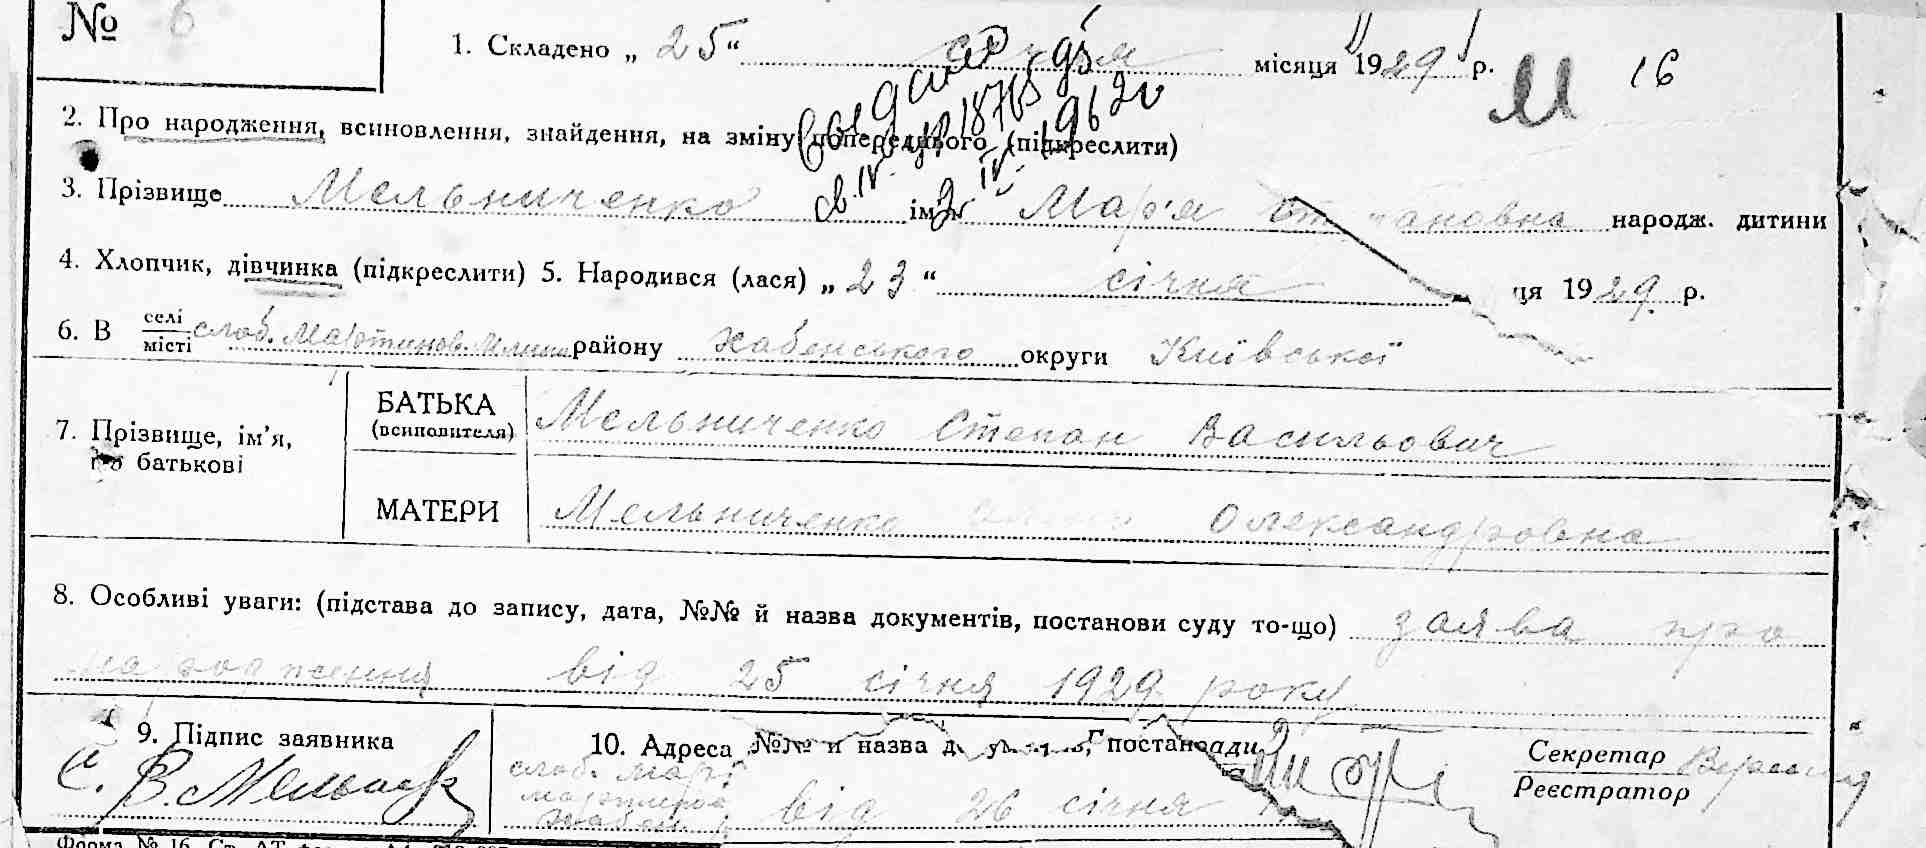 № 6
1. Складено „ 25 “ січня місяця 1929 р. М 16
видано
св. IV № 18765
IV 1962
2. Про народження, всиновлення, знайдення, на зміну попереднього (підкреслити)
3. Прізвище Мельниченко ім'я Мар'я Степановна народж. дитини
4. Хлопчик, дівчинка (підкреслити) 5. Народився (лася) „ 23 “ січня ця 1929 р.
6. В селі місті слоб. Мартинов. району Хабенського округи Київської
7. Прізвище, ім'я, по батькові
БАТЬКА (всиновителя) Мельниченко Степан Васильович
МАТЕРИ Мельниченко Олександровна
8. Особливі уваги: (підстава до запису, дата, №№ й назва документів, постанови суду то-що) заява про
народження від 25 січня 1929 року
9. Підпис заявника
10. Адреса №№ й назва документів, постанови
Секретар
Реєстратор
С. В. Мельнич
слоб.
від 26 січня
Форма № 16.